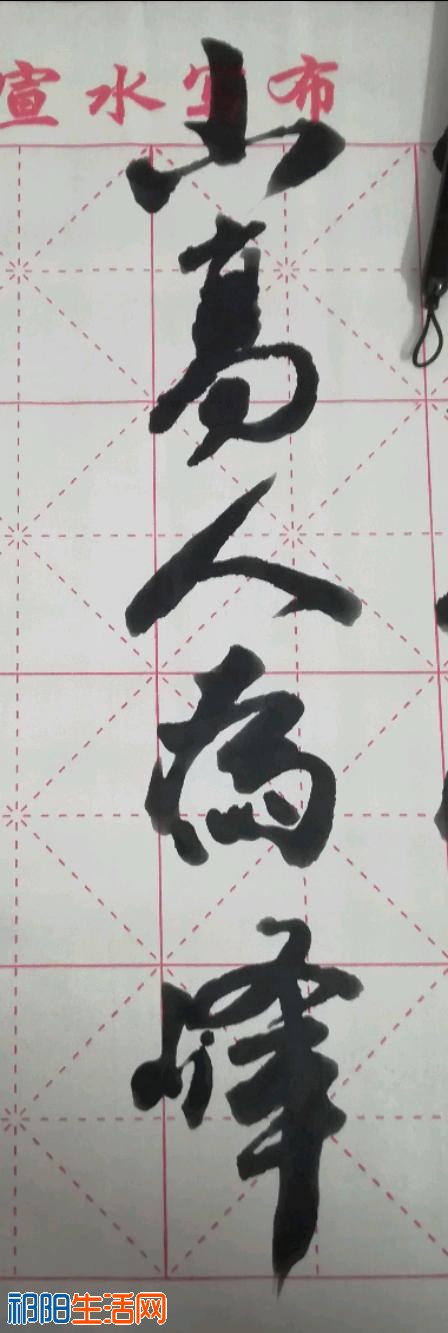 宣水写布
山高人為峰
祁阳生活网